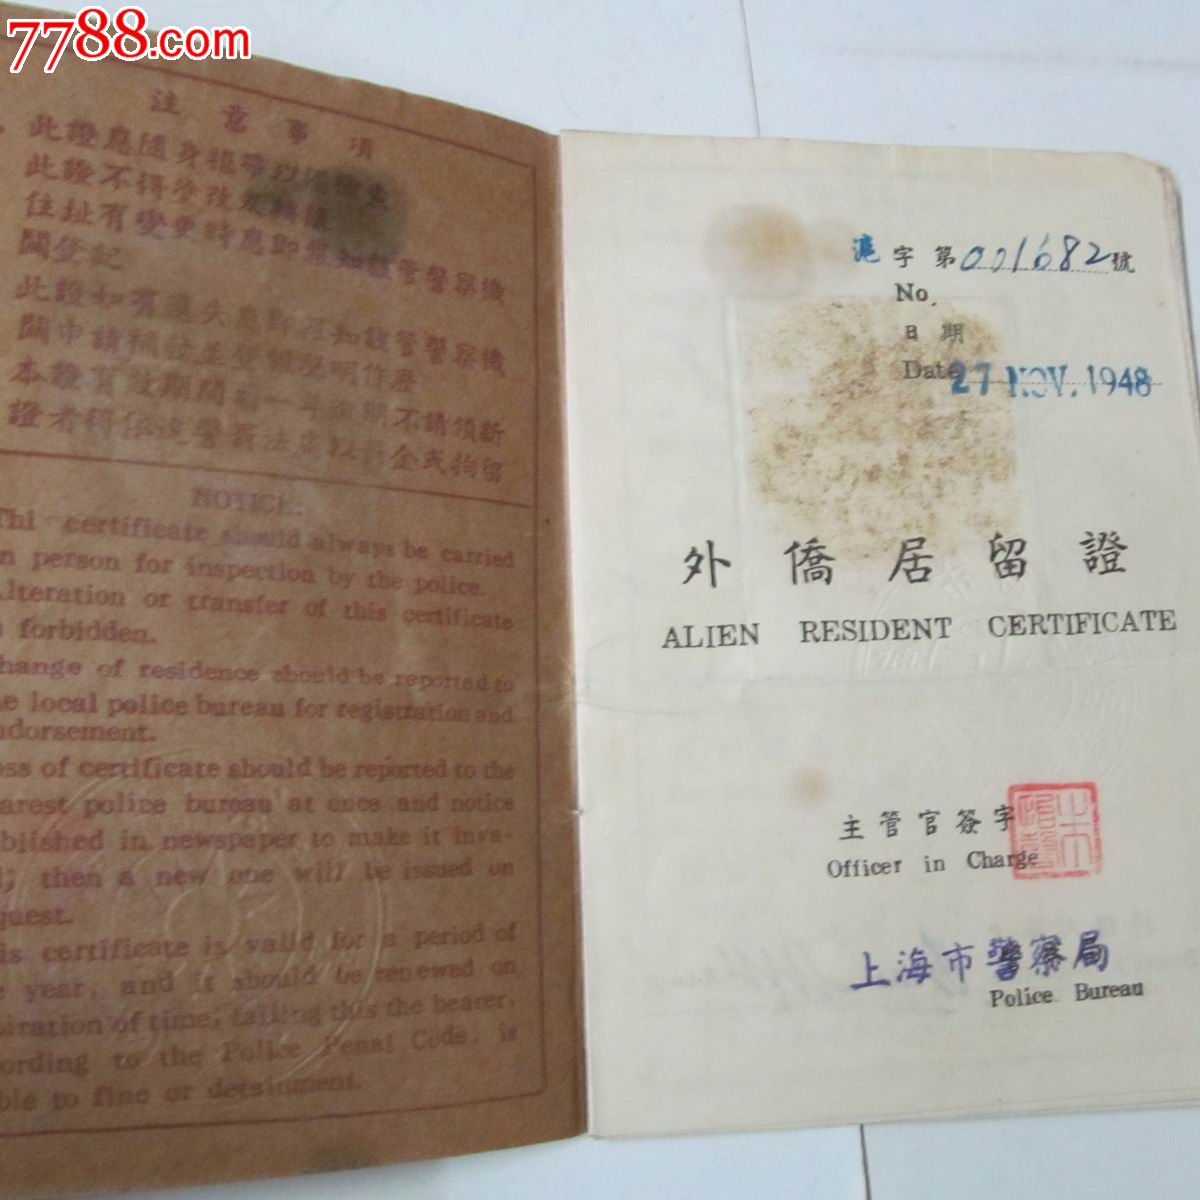 7788.com
注意事項
此證應隨身攜帶以備檢查
此證不得塗改或轉讓
住址有變更時應即報知該管警察機
關登記
此證如有遺失應即報知該管警察機
關申請補發並登報說明作廢
本證有效期間為一年逾期不請領新
證者得依違警罰法處以罰金或拘留
NOTICE:
Thi certificate should always be carried
in person for inspection by the police.
Alteration or transfer of this certificate
forbidden.
hange of residence should be reported to
e local police bureau for registration and
ndorsement.
oss of certificate should be reported to the
arest police bureau at once and notice
blished in newspaper to make it inva-
; then a new one will be issued on
quest.
is certificate is valid for a period of
e year, and it should be renewed on
piration of time, failing this the bearer,
ording to the Police Penal Code, is
ble to fine or detainment.
滬字第001682號
No.
日期
Date 27 NOV. 1948
外僑居留證
ALIEN RESIDENT CERTIFICATE
主管官簽字
Officer in Charge
上海市警察局
Police Bureau